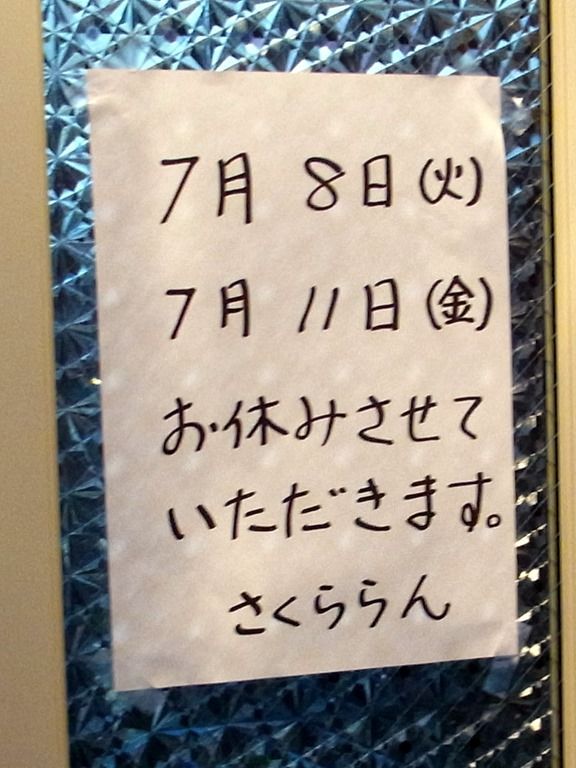 7月 8日(火)
7月 11日(金)
お休みさせて
いただきます。
さくららん